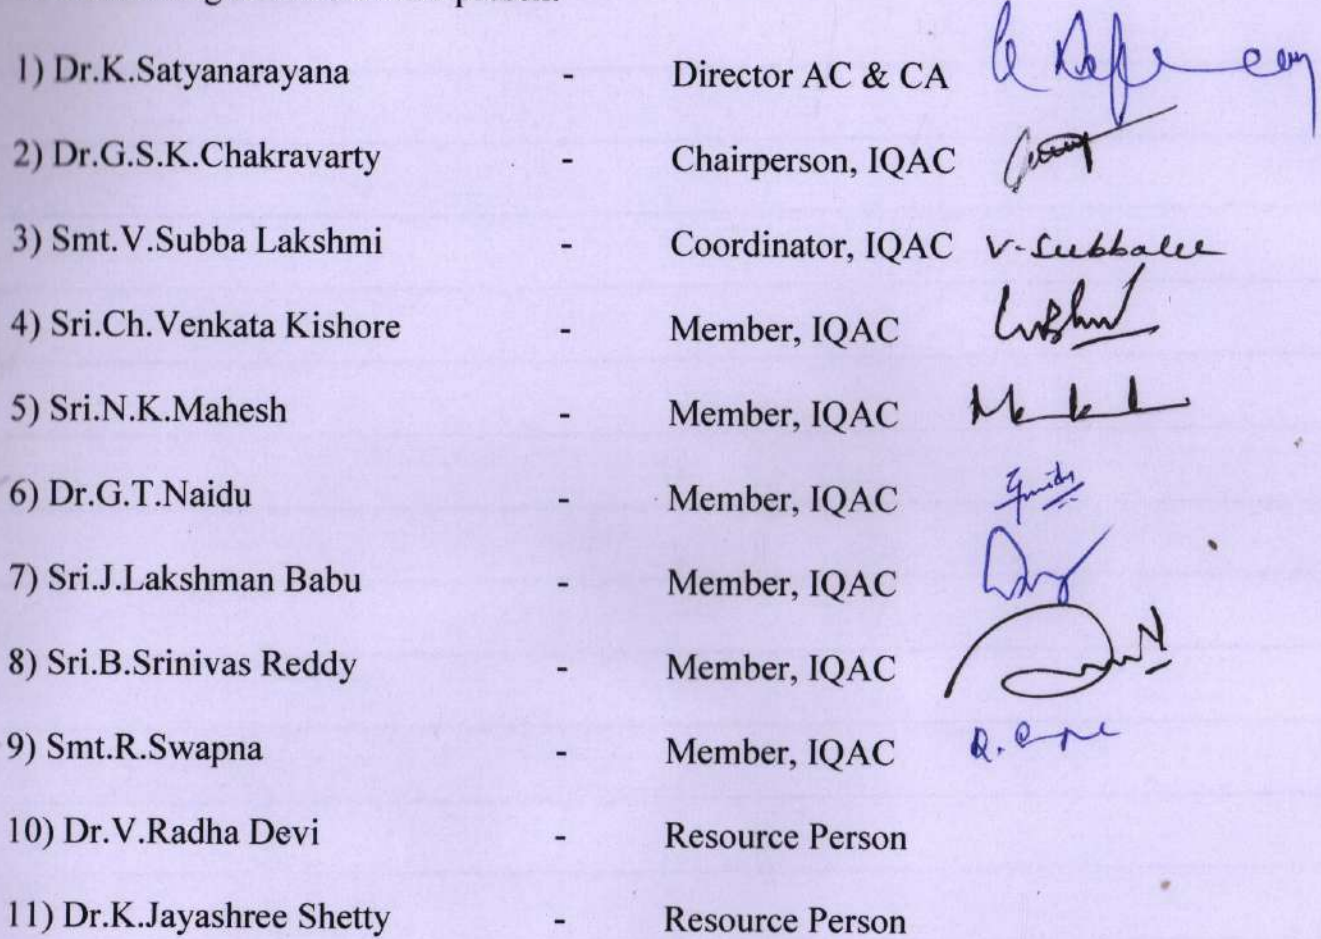 1) Dr.K.Satyanarayana - Director AC & CA
2) Dr.G.S.K.Chakravarty - Chairperson, IQAC
3) Smt.V.Subba Lakshmi - Coordinator, IQAC V-Subbalu
4) Sri.Ch.Venkata Kishore - Member, IQAC
5) Sri.N.K.Mahesh - Member, IQAC
6) Dr.G.T.Naidu - Member, IQAC
7) Sri.J.Lakshman Babu - Member, IQAC
8) Sri.B.Srinivas Reddy - Member, IQAC
9) Smt.R.Swapna - Member, IQAC
10) Dr.V.Radha Devi - Resource Person
11) Dr.K.Jayashree Shetty - Resource Person